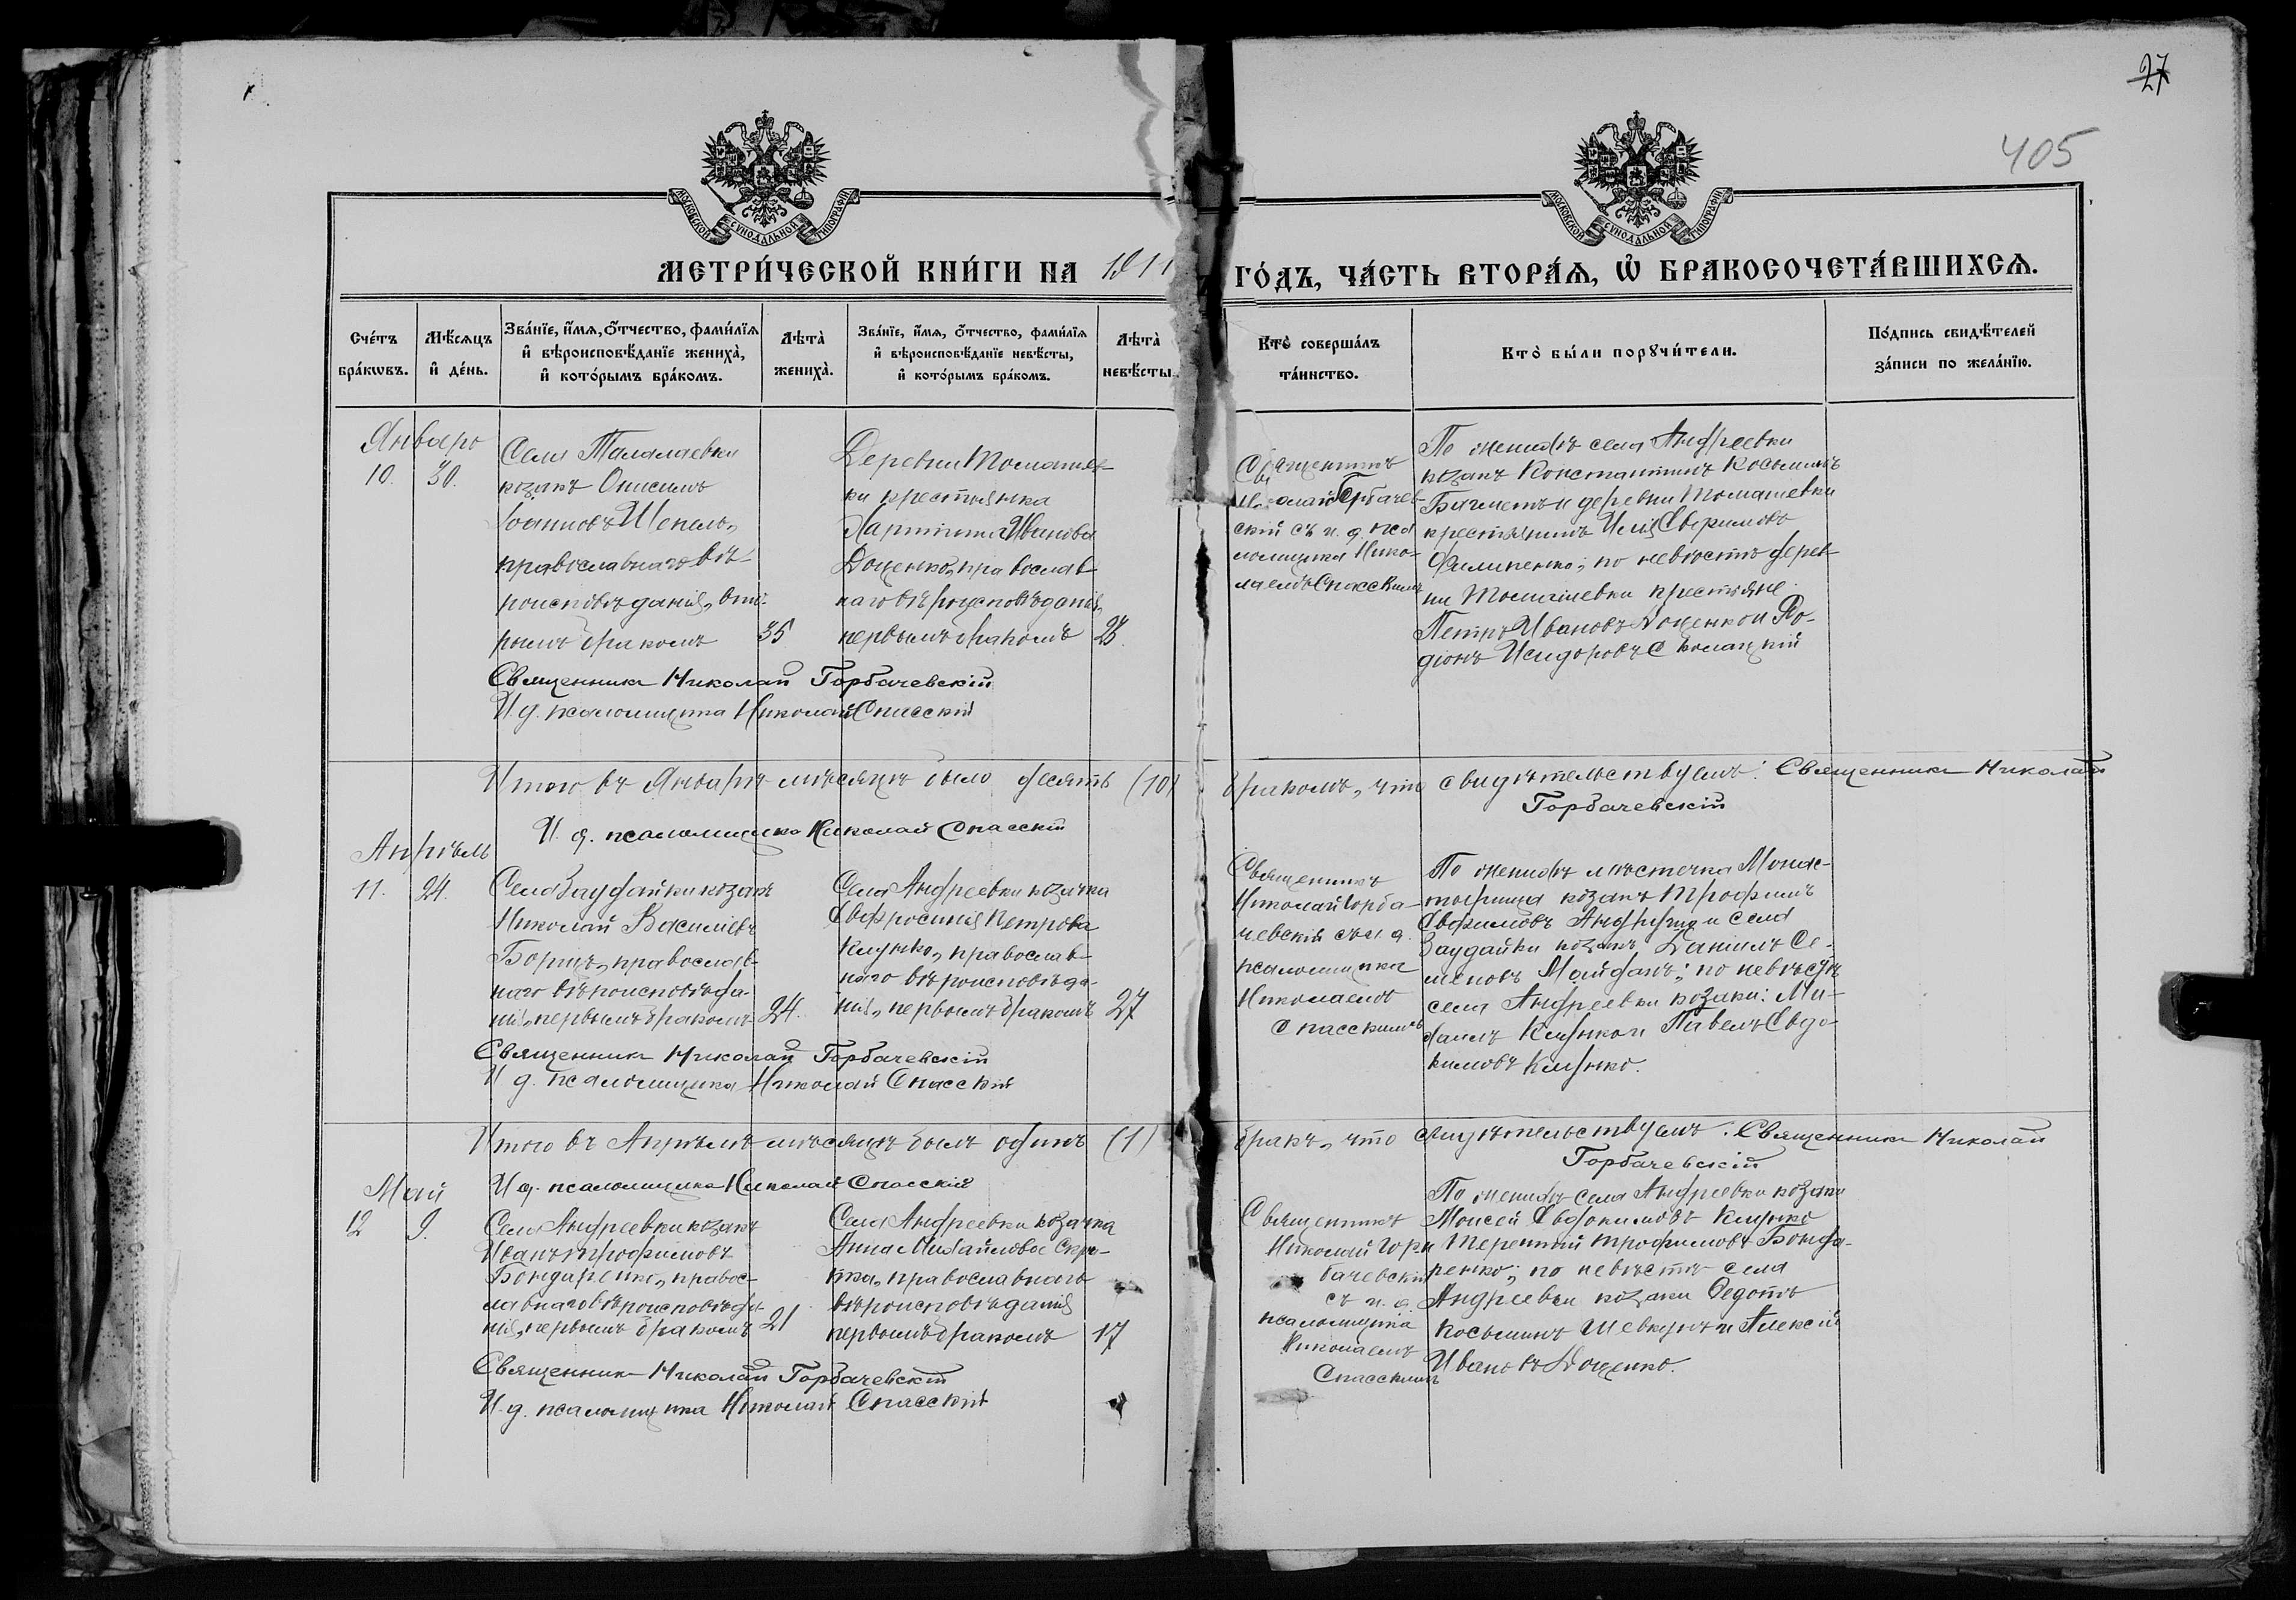 27
405
МОСКОВСКОЙ СУНОДАЛЬНОЙ ТИПОГРАФІИ
МОСКОВСКОЙ СУНОДАЛЬНОЙ ТИПОГРАФІИ
МЕТРИ́ЧЕСКОЙ КНИ́ГИ НА 1911 ГО́ДЪ, ЧА́СТЬ ВТОРА́Ѧ, Ѿ БРАКОСОЧЕТА́ВШИХСѦ.
Сче́тъ бра́кѡвъ.
Мѣ́сѧцъ и҆ де́нь.
Зва́нїе, и҆́мѧ, ѻ҆́тчество, фами́лїѧ и҆ вѣроисповѣ́данїе жениха̀, и҆ кото́рымъ бра́комъ.
Лѣта̀ жениха̀.
Зва́нїе, и҆́мѧ, ѻ҆́тчество, фами́лїѧ и҆ вѣроисповѣ́данїе невѣ́сты, и҆ кото́рымъ бра́комъ.
Лѣта̀ невѣ́сты.
Кто̀ соверша́лъ та́инство.
Кто̀ бы́ли порꙋчи́тели.
По́дпись свидѣ́телей за́писи по жела́нїю.
Январь
10. 30.
Села Талалаевки
козакъ Онисимъ
Іоанновъ Шепель,
православнаго вѣ-
роисповѣданія, вто-
рымъ бракомъ 35
Деревни Томашев-
ки крестьянка
Харитина Иванова
Доценко, православ-
наго вѣроисповѣданія,
первымъ бракомъ 28.
Священникъ
Николай Горбачев-
скій съ и. д. пса-
ломщика Нико-
лаемъ Спасскимъ
По женихѣ села Андреевки
козакъ Константинъ Косьминъ
и деревни Томашевки
крестьянинъ Илія Ефимовъ
Филипенко; по невѣстѣ дерев-
ни Томашевки крестьяне
Петръ Ивановъ Доценко и Ро-
діонъ Исидоровъ
Священникъ Николай Горбачевскій
И. д. псаломщика Николай Спасскій
Итого въ Январѣ мѣсяцѣ было десять (10) браковъ, что свидѣтельствуемъ: Священникъ Николай
Горбачевскій
И. д. псаломщика Николай Спасскій
Апрѣль
11. 24.
Села Заудайки козакъ
Николай Васильевъ
Борщъ, православ-
наго вѣроисповѣда-
нія, первымъ бракомъ 24.
Села Андреевки козачка
Евфросинія Петрова
Клунко, православ-
наго вѣроисповѣда-
нія, первымъ бракомъ 27
Священникъ
Николай Горба-
чевскій съ и. д.
псаломщика
Николаемъ
Спасскимъ
По женихѣ мѣстечка Монас-
тырища козакъ Трофимъ
Евфимовъ и села
Заудайки козакъ Даніилъ Се-
меновъ Майданъ; по невѣстѣ
села Андреевки козаки: Ми-
хаилъ Клунко и Павелъ Евдо-
кимовъ Клунко.
Священникъ Николай Горбачевскій
И. д. псаломщика Николай Спасскій
Итого въ Апрѣлѣ мѣсяцѣ былъ одинъ (1) бракъ, что свидѣтельствуемъ: Священникъ Николай
Горбачевскій
И. д. псаломщика Николай Спасскій
Май
12 9.
Села Андреевки козакъ
Иванъ Трофимовъ
Бондаренко, правос-
лавнаго вѣроисповѣда-
нія, первымъ бракомъ 21
Села Андреевки козачка
Анна Михайлова
православнаго
вѣроисповѣданія
первымъ бракомъ 17
Священникъ
Николай Гор-
бачевскій
съ и. д.
псаломщика
Николаемъ
Спасскимъ
По женихѣ села Андреевки козаки
Моисей Евдокимовъ Клунко
и Терентій Трофимовъ Бонда-
ренко; по невѣстѣ села
Андреевки козаки Ѳедотъ
Косьминъ Шевкунъ и Алексій
Ивановъ Доценко.
Священникъ Николай Горбачевскій
И. д. псаломщика Николай Спасскій